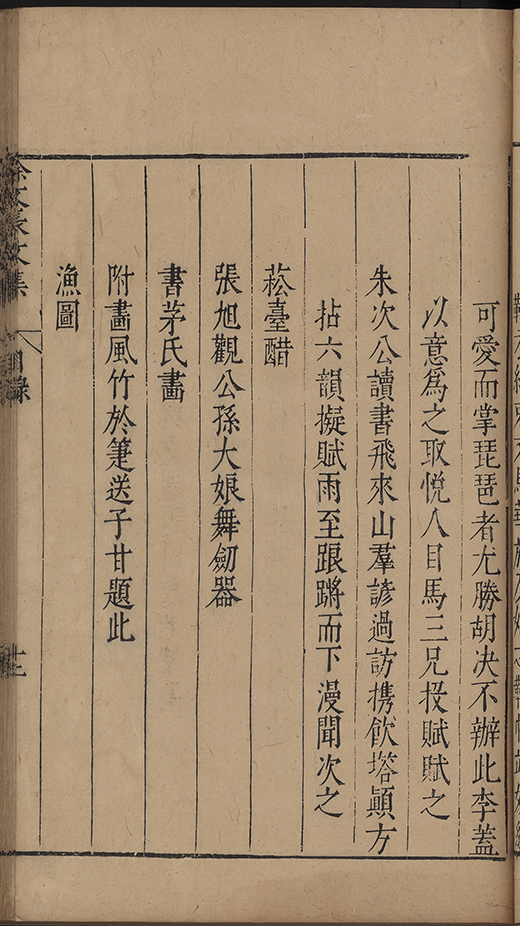 可愛而掌琵琶者尤勝胡决不辦此李蓋
以意爲之取悅人目馬三兄投賦賦之
朱次公讀書飛來山羣諺過訪携飮塔顚方
拈六韻擬賦雨至踉蹡而下漫聞次之
菘臺醋
張旭觀公孫大娘舞劒器
書茅氏畵
附畵風竹於箑送子甘題此
漁圖
徐文長文集
目錄